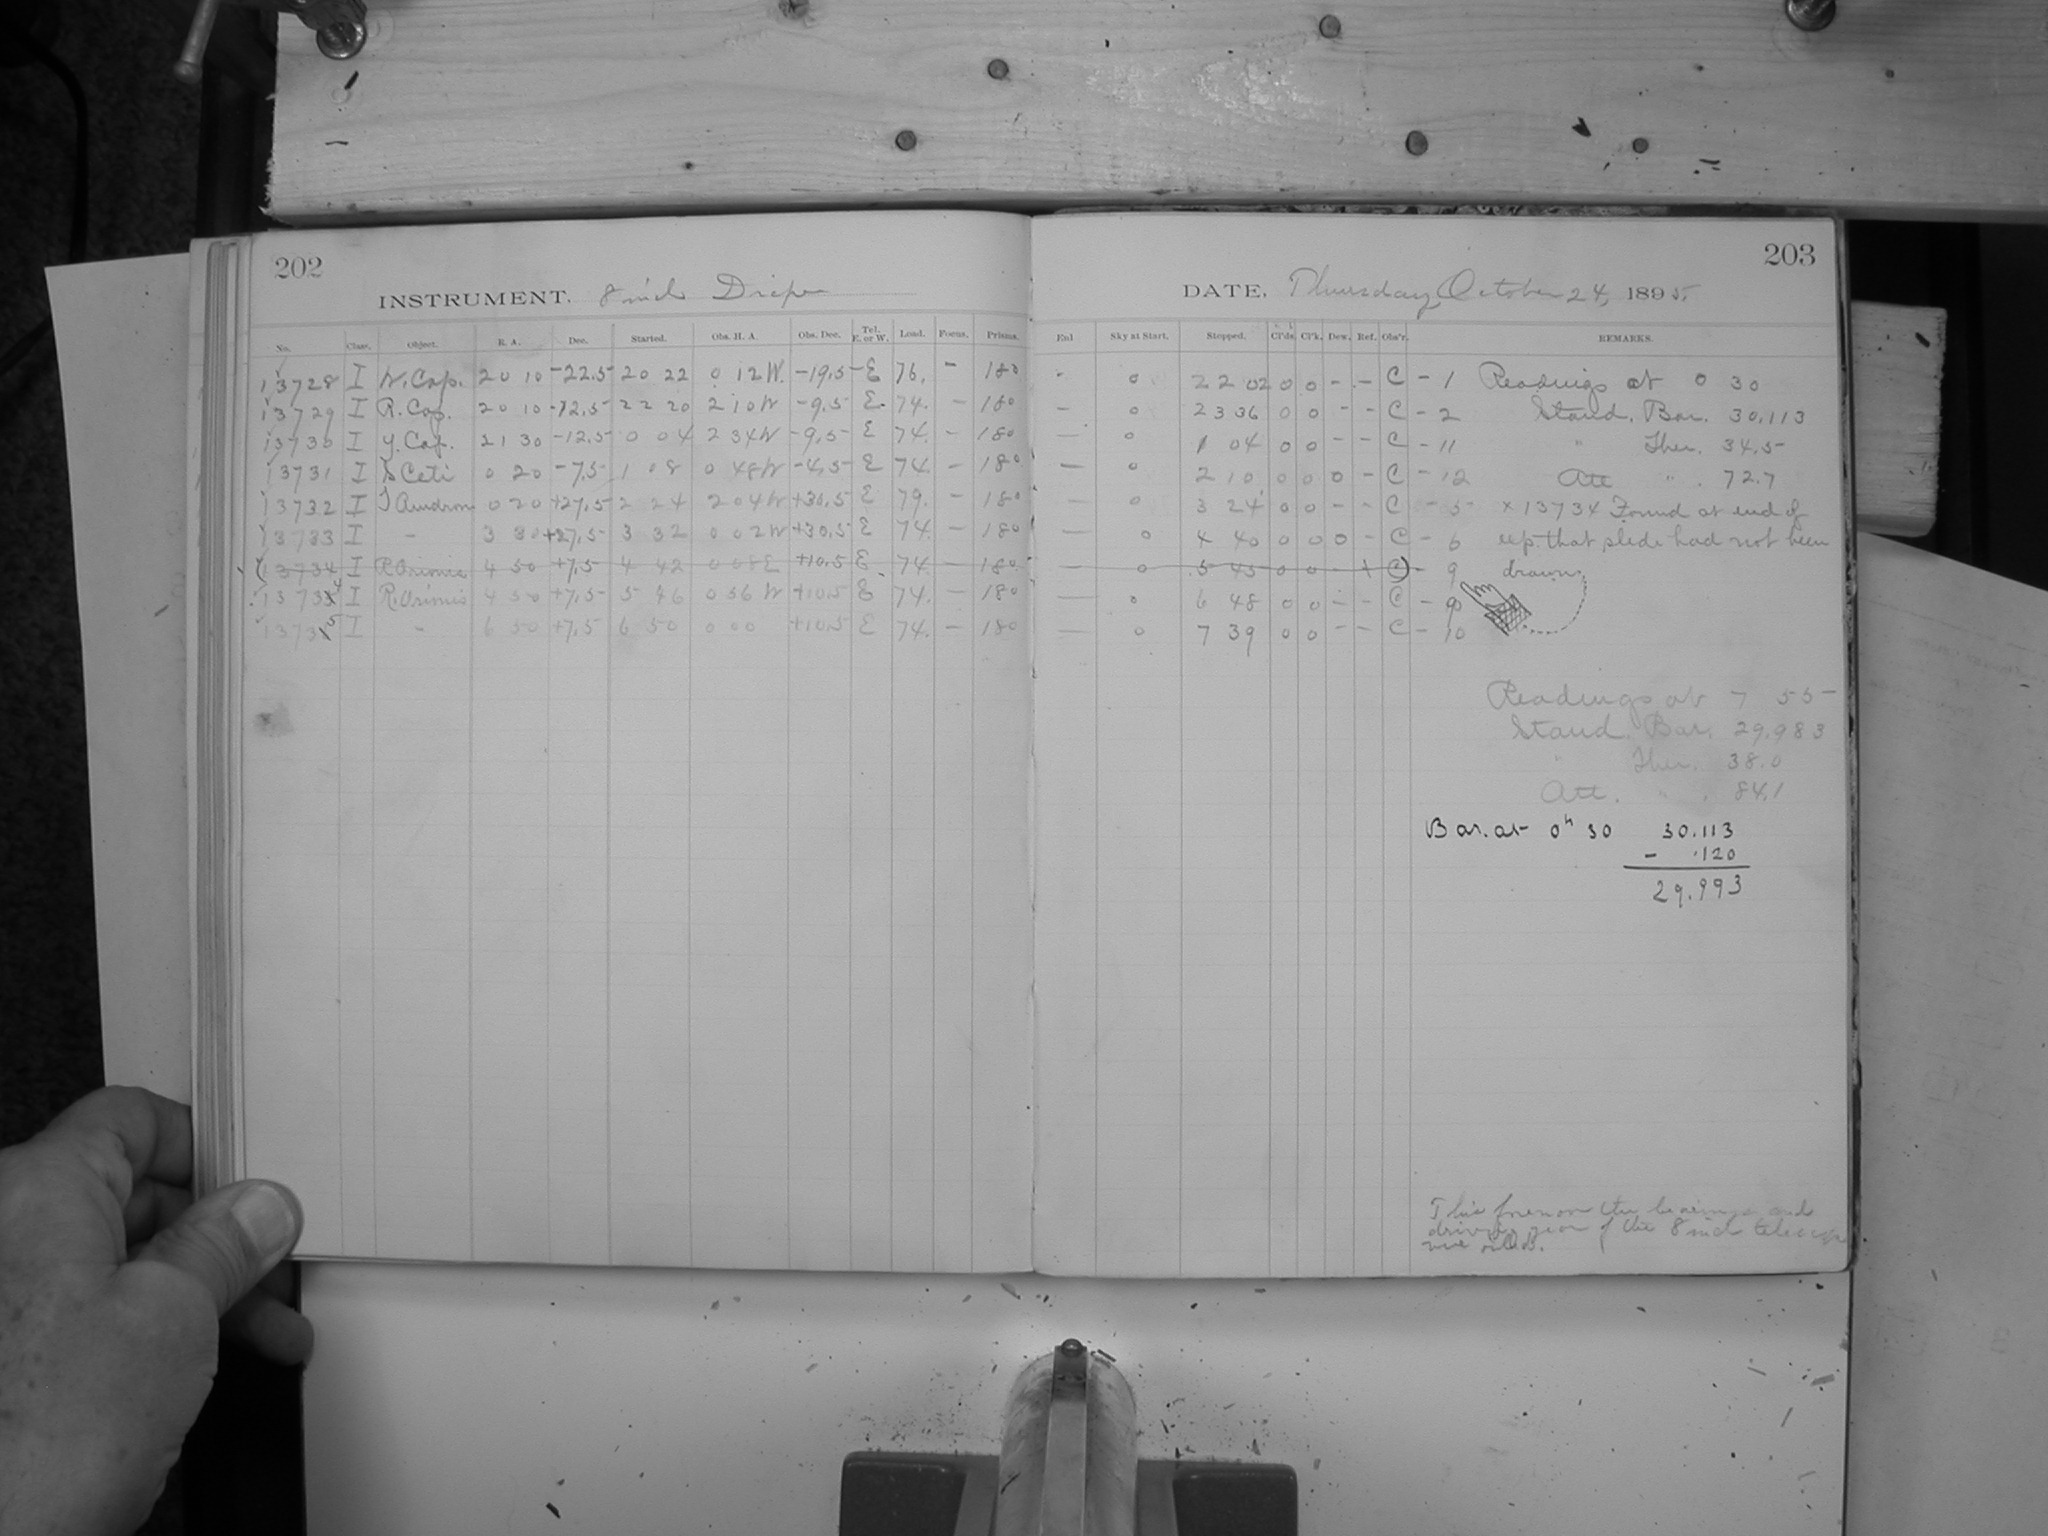 202
INSTRUMENT. 8 inch Draper
No. Class. Object. R. A. Dec. Started. Obs. H. A. Obs. Dec. Tel. E. or W. Load. Focus. Prisms.
13728 I W. Cap. 20 10 -22.5 20 22 0 12 W. -19.5 E 76. - 180
13729 I R. Cap. 20 10 -12.5 22 20 2 10 W -9.5 E. 74. - 180
13730 I Y. Cap. 21 30 -12.5 0 04 2 34 W -9.5 E 74. - 180
13731 I S Ceti 0 20 -7.5 1 08 0 48 W -4.5 E 74. - 180
13732 I T Androm 0 20 +27.5 2 24 2 04 W +30.5 E 79. - 180
13733 I - 3 30 +27.5 3 32 0 02 W +30.5 E 74. - 180
13734 I R Orionis 4 50 +7.5 4 42 0 08 E +10.5 E 74. - 180
13734 I R. Orionis 4 50 +7.5 5 46 0 56 W +10.5 E 74. - 180
13735 I - 6 50 +7.5 6 50 0 00 +10.5 E 74. - 180
203
DATE, Thursday, October 24, 1895.
Enl Sky at Start. Stopped. Cl'ds Cl'k. Dew. Ref. Obs'r. REMARKS.
- 0 22 02 0 0 - - C - 1 Readings at 0 30
- 0 23 36 0 0 - - C - 2 Stand. Bar. 30,113
- 0 1 04 0 0 - - C - 11 " Ther. 34.5
- 0 2 10 0 0 0 - C - 12 Att " . 72.7
- 0 3 24 0 0 - - C - 5 x 13734 Found at end of
- 0 4 40 0 0 0 - C - 6 exp. that slide had not been
- 0 5 45 0 0 - x C - 9 drawn.
- 0 6 48 0 0 - - C - 9
- 0 7 39 0 0 - - C - 10
Readings at 7 55
Stand. Bar. 29.983
" Ther. 38.0
Att. " . 84.1
Bar. at 0h 30 30.113
- .120
29.993
This forenoon the bearings and
driving gear of the 8 inch telescope
were oiled.